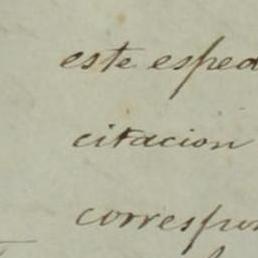 este esped
citacion
correspon